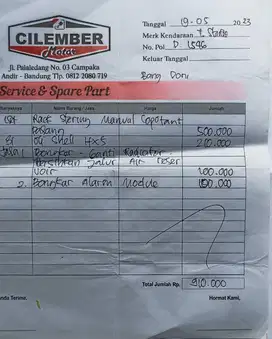 CILEMBER
Motor
Jl. Palaledang No. 03 Campaka
Andir - Bandung Tlp. 0812 2080 719
Tanggal 19-05 2023
Merk Kendaraan
No. Pol D. 1596
Keluar Tanggal
Bang Doni
Service & Spare Part
Banyaknya Nama Barang / Jasa Harga Jumlah
Rack Stering Manual Copotant
Pasang 500.000
Oli Shell HX5 210.000
Bongkar - Ganti Radiator.
Bersihkan Jalur Air
100.000
2. Bongkar Alarem Module 100.000
Total Jumlah Rp. 910.000
anda Terima: Hormat Kami,